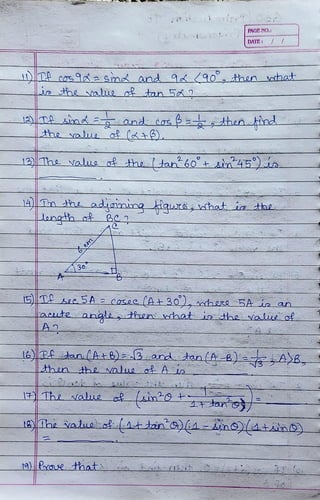 PAGE NO.:
DATE: / /
11) If cos9α = sinα and 9α < 90°, then what
is the value of tan 5α?
12) If sinα = 1/2 and cosβ = 1/2, then find
the value of (α+β).
13) The value of the (tan²60° + sin²45°) is
14) In the adjoining figure, what is the
length of BC?
C
6 cm
30°
A
B
15) If sec 5A = cosec (A + 30°), where 5A is an
acute angle, then what is the value of
A?
16) If tan(A+B) = √3 and tan(A-B) = 1/√3, A>B,
then the value of A is
17) The value of (sin²θ + 1/(1+tan²θ)) =
18) The value of (1+tan²θ)(1-sinθ)(1+sinθ)
=
19) Prove that